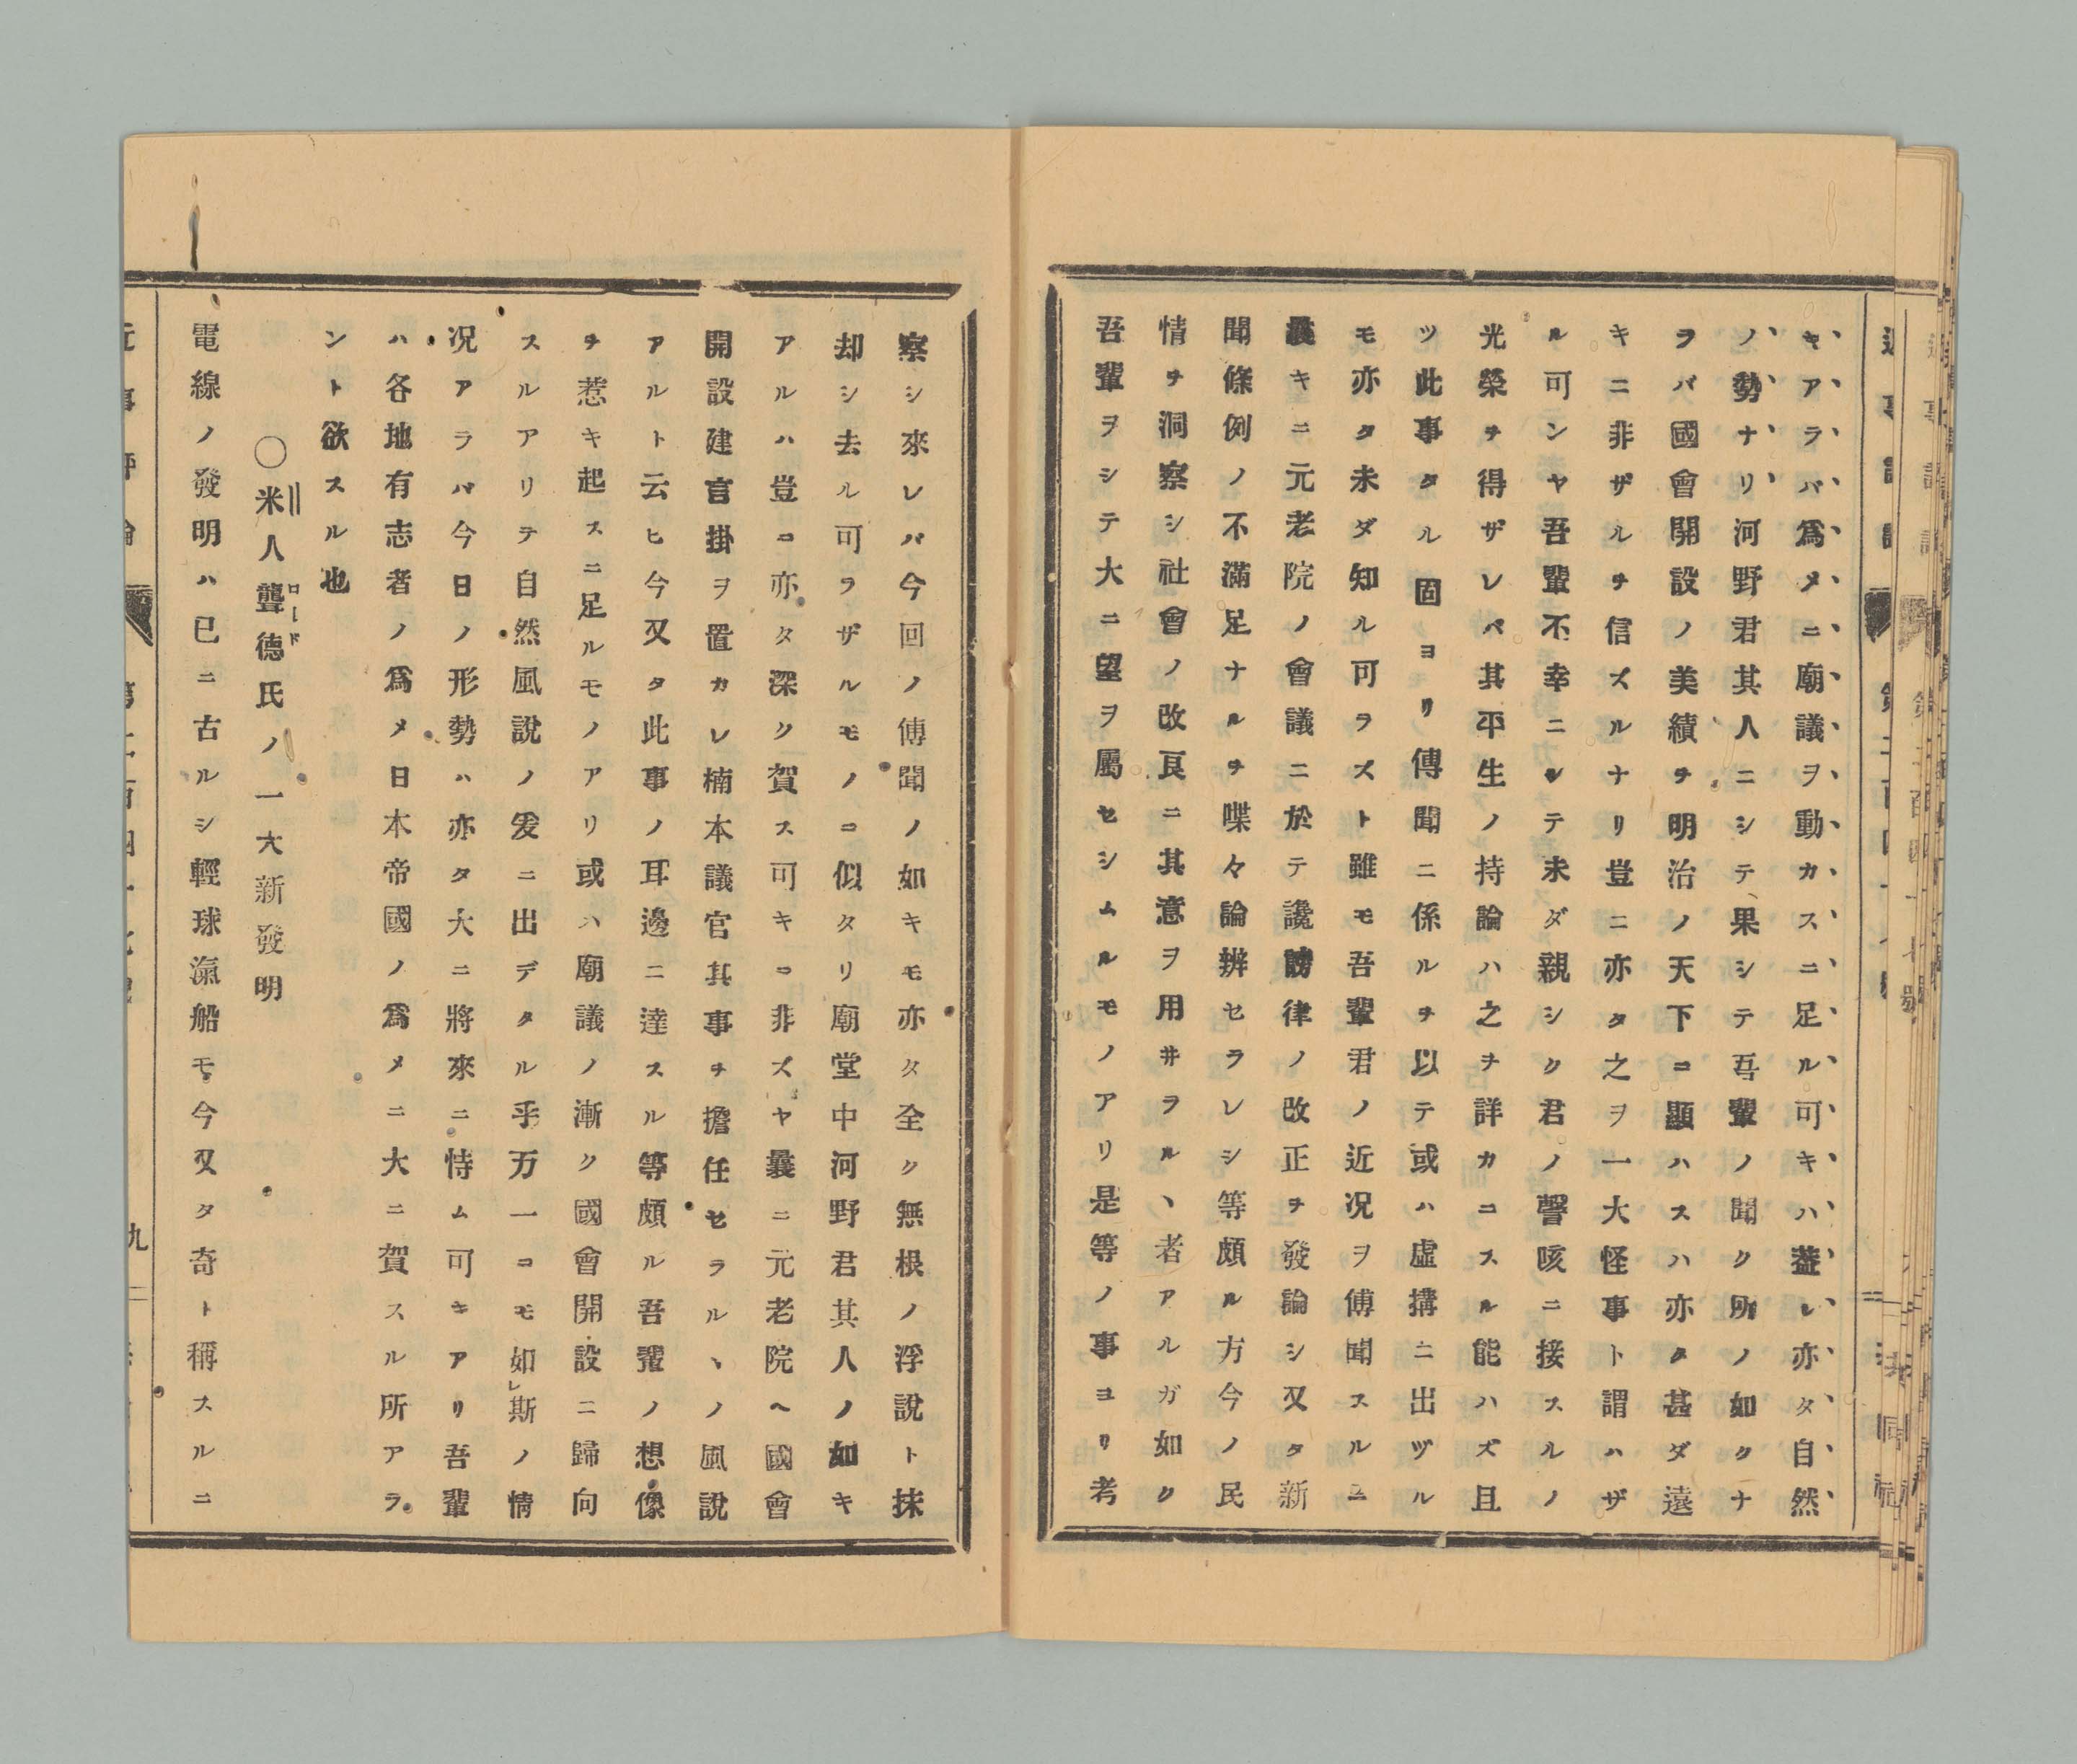 キアラバ爲メニ廟議ヲ動カスニ足ル可キハ蓋レ亦タ自然
ノ勢ナリ河野君其人ニシテ果シテ吾輩ノ聞ク所ノ如クナ
ラバ國會開設ノ美績ヲ明治ノ天下ニ顯ハスハ亦タ甚ダ遠
キニ非ザルヲ信ズルナリ豈ニ亦タ之ヲ一大怪事ト謂ハザ
ル可ンヤ吾輩不幸ニシテ未ダ親シク君ノ謦咳ニ接スルノ
光榮ヲ得ザレバ其平生ノ持論ハ之ヲ詳カニスル能ハズ且
ツ此事タル固ヨリ傳聞ニ係ルヲ以テ或ハ虛搆ニ出ヅル
モ亦タ未ダ知ル可ラズト雖モ吾輩君ノ近况ヲ傳聞スルニ
曩キニ元老院ノ會議ニ於テ讒謗律ノ改正ヲ發論シ又タ新
聞條例ノ不滿足ナルヲ喋々論辨セラレシ等頗ル方今ノ民
情ヲ洞察シ社會ノ改良ニ其意ヲ用井ラルヽ者アルガ如ク
吾輩ヲシテ大ニ望ヲ屬セシムルモノアリ是等ノ事ヨリ考
察シ來レバ今回ノ傳聞ノ如キモ亦タ全ク無根ノ浮說ト抹
却シ去ル可ラザルモノニ似タリ廟堂中河野君其人ノ如キ
アルハ豈ニ亦タ深ク賀ス可キニ非ズヤ曩ニ元老院ヘ國會
開設建言掛ヲ置カレ楠本議官其事ヲ擔任セラルヽノ風說
アルト云ヒ今又タ此事ノ耳邊ニ達スル等頗ル吾輩ノ想像
ヲ惹キ起スニ足ルモノアリ或ハ廟議ノ漸ク國會開設ニ歸向
スルアリテ自然風說ノ爰ニ出デタル乎万一ニモ如斯ノ情
况アラバ今日ノ形勢ハ亦タ大ニ將來ニ恃ム可キアリ吾輩
ハ各地有志者ノ爲メ日本帝國ノ爲メニ大ニ賀スル所アラ
ント欲スル也
○米人聾德氏ノ一大新發明
ロード
電線ノ發明ハ已ニ古ルシ輕球滊船モ今又タ奇ト稱スルニ
九